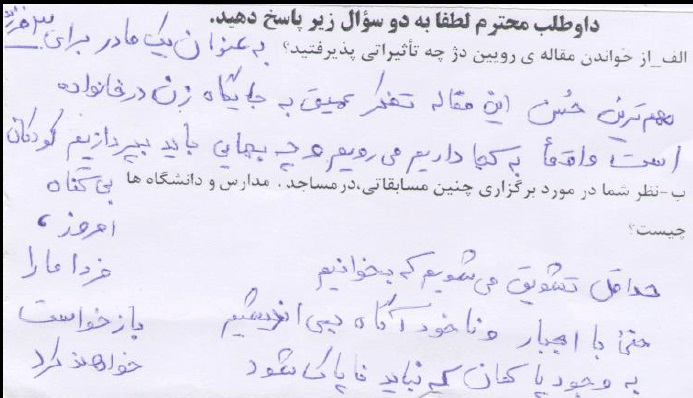 داوطلب محترم لطفا به دو سؤال زیر پاسخ دهید.
الف_از خواندن مقاله ی رویین دژ چه تأثیراتی پذیرفتید؟ به عنوان یک مادر برای
مهم ترین حُسن این مقاله تفکر عمیق به جایگاه زن در خانواده
است واقعاً به کجا داریم می رویم و چه بهایی باید بپردازیم کودکان
ب-نظر شما در مورد برگزاری چنین مسابقاتی،در مساجد . مدارس و دانشگاه ها
چیست؟
بی گناه
امروز،
فردا ما را
بازخواست
خواهند کرد
حداقل تشویق می شویم که بخوانیم
حتی با اجبار و ناخودآگاه بیندیشیم
به وجود پاکمان که نباید ناپاک شود